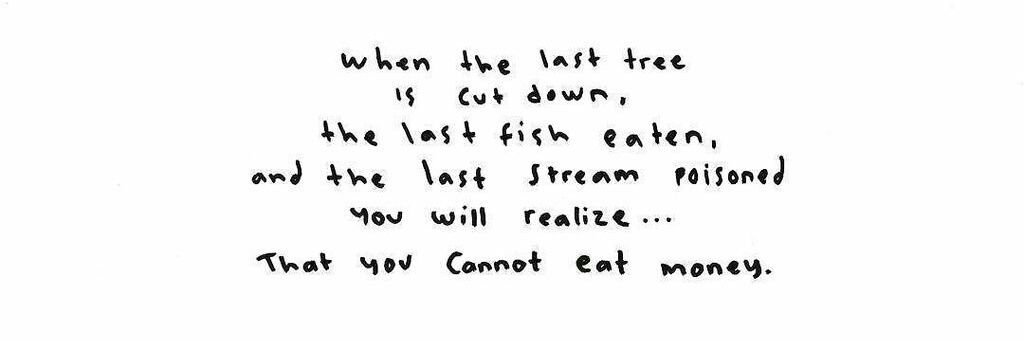 when the last tree
is cut down,
the last fish eaten,
and the last stream poisoned
you will realize...
That you cannot eat money.